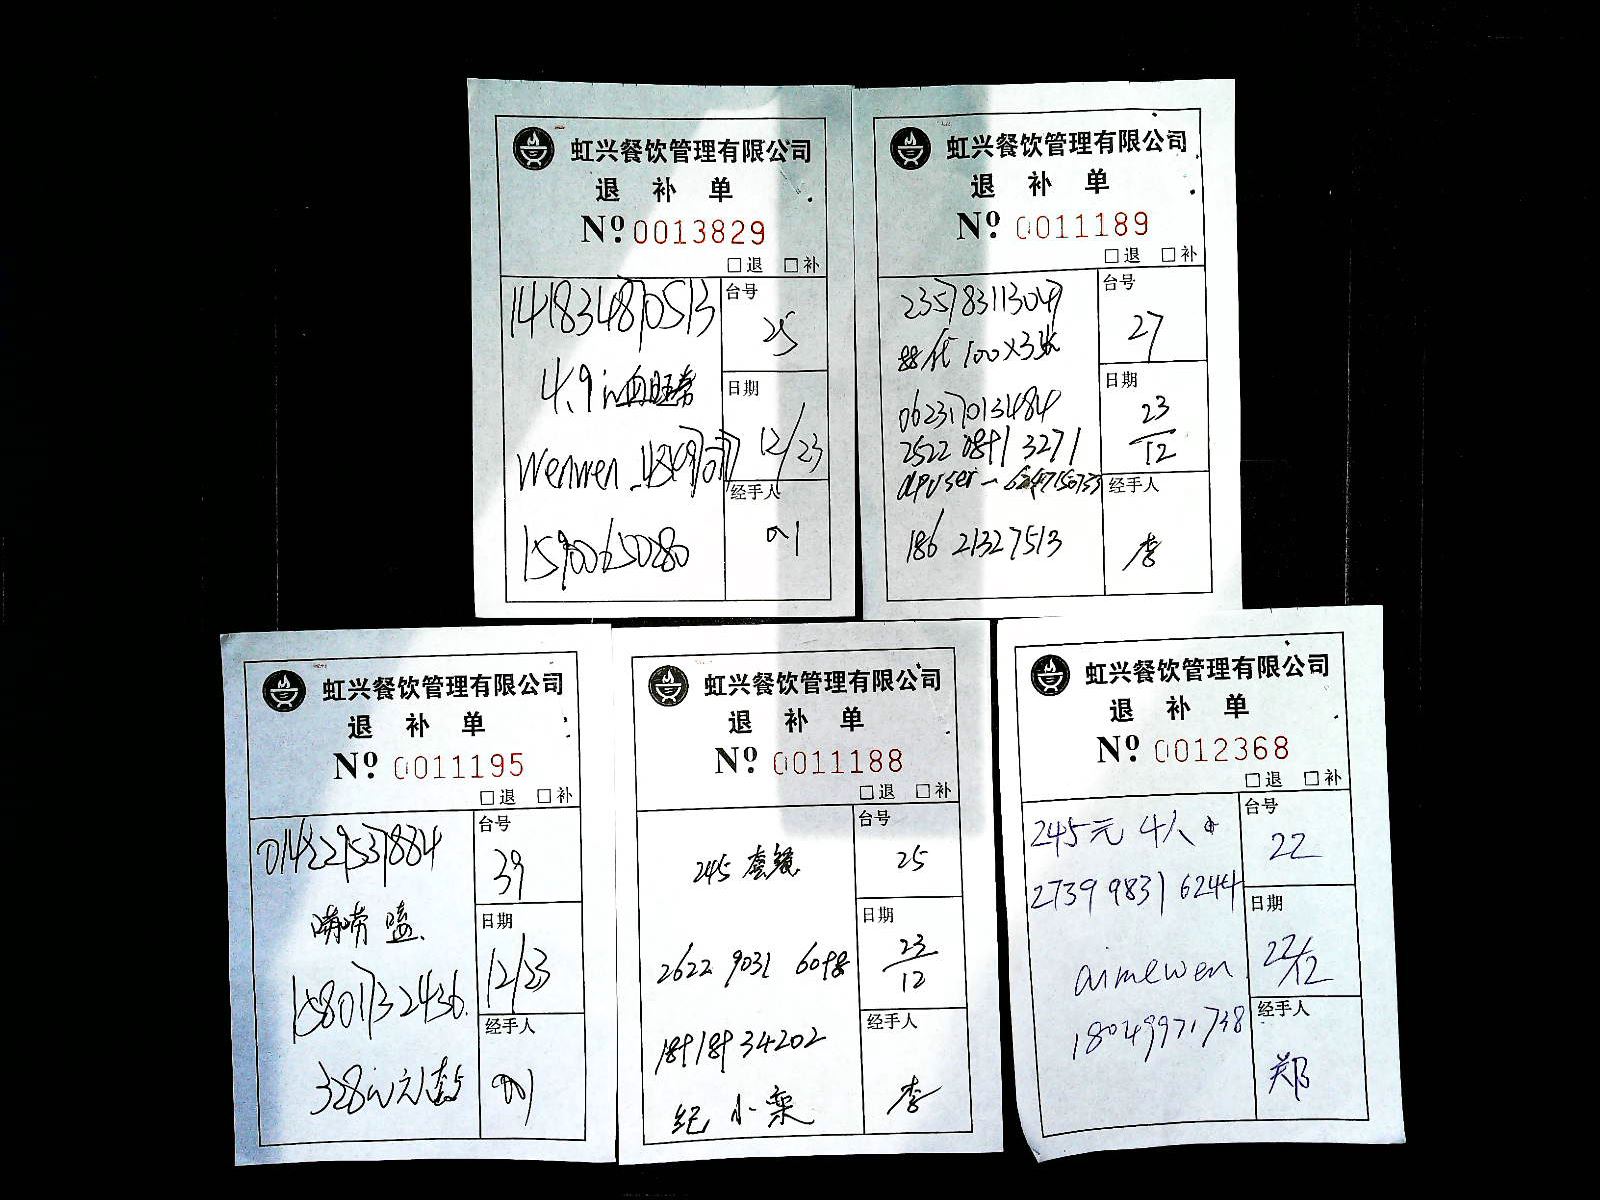 虹兴餐饮管理有限公司
退 补 单
Nº 0013829
□退 □补
台号
25
日期
12/23
经手人
01
141834870513
4.9
Wenwen
15900650280
虹兴餐饮管理有限公司
退 补 单
Nº 0011189
□退 □补
台号
27
日期
23/12
经手人
李
235783113047
100×3张
062370134484
2522 0891 3271
dpuser
186 21327513
虹兴餐饮管理有限公司
退 补 单
Nº 0011195
□退 □补
台号
39
日期
12/23
经手人
014229531884
唠嗑
15801732436
328元
虹兴餐饮管理有限公司
退 补 单
Nº 0011188
□退 □补
台号
25
日期
23/12
经手人
李
245 套餐
2622 9031 6098
18918934202
纪小栾
虹兴餐饮管理有限公司
退 补 单
Nº 0012368
□退 □补
台号
22
日期
22/12
经手人
郑
245元 4人
2739 9831 6244
aimewen
18049971738